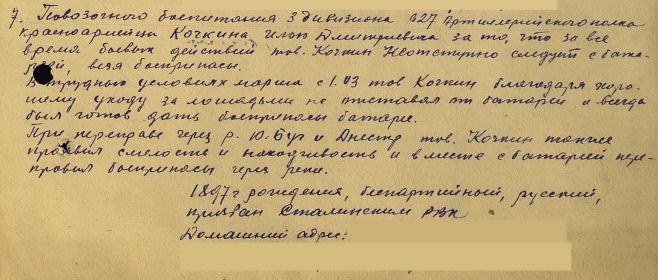 7. Повозочного боепитания 3 дивизиона 327 Артиллерийского полка
красноармейца Кочкина Илью Дмитриевича за то, что за все
время боевых действий тов. Кочкин Неотступно следует с бата-
реей, везя боеприпасы.
В трудных условиях марша с 1.03 тов Кочкин благодаря хоро-
шему уходу за лошадьми не отставал от батареи и всегда
был готов дать боеприпасы батарее.
При переправе через р. Ю. Буг и Днестр тов. Кочкин также
проявил смелость и находчивость и вместе с батарией пере-
правил боеприпасы через реки.
1897 г рождения, беспартийный, русский,
призван Сталинским РВК
Домашний адрес: